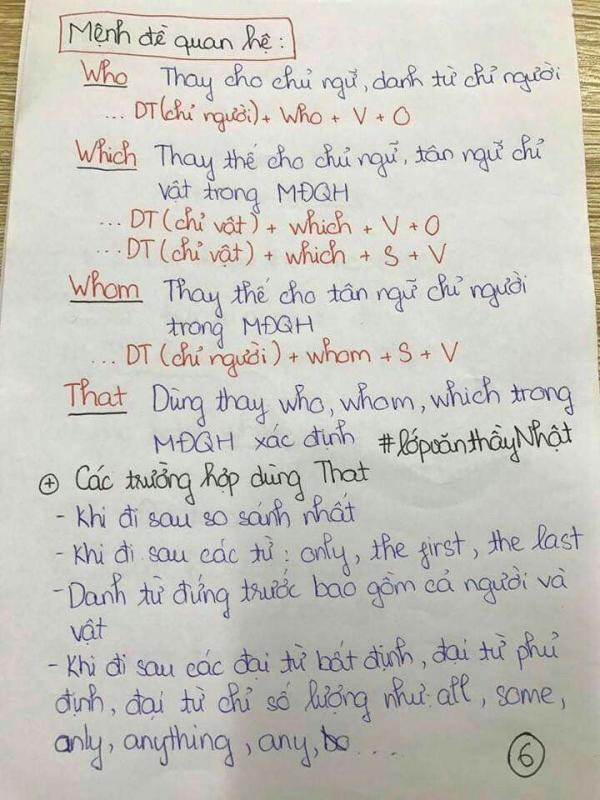 Mệnh đề quan hệ:
Who Thay cho chủ ngữ, danh từ chỉ người
... DT(chỉ người) + who + V + O
Which Thay thế cho chủ ngữ, tân ngữ chỉ
vật trong MĐQH
... DT (chỉ vật) + which + V + O
... DT (chỉ vật) + which + S + V
Whom Thay thế cho tân ngữ chỉ người
trong MĐQH
... DT (chỉ người) + whom + S + V
That Dùng thay who, whom, which trong
MĐQH xác định #lớpvănthầyNhật
+ Các trường hợp dùng That
- Khi đi sau so sánh nhất
- Khi đi sau các từ: only, the first, the last
- Danh từ đứng trước bao gồm cả người và
vật
- Khi đi sau các đại từ bất định, đại từ phủ
định, đại từ chỉ số lượng như: all, some,
only, anything, any, ....
6